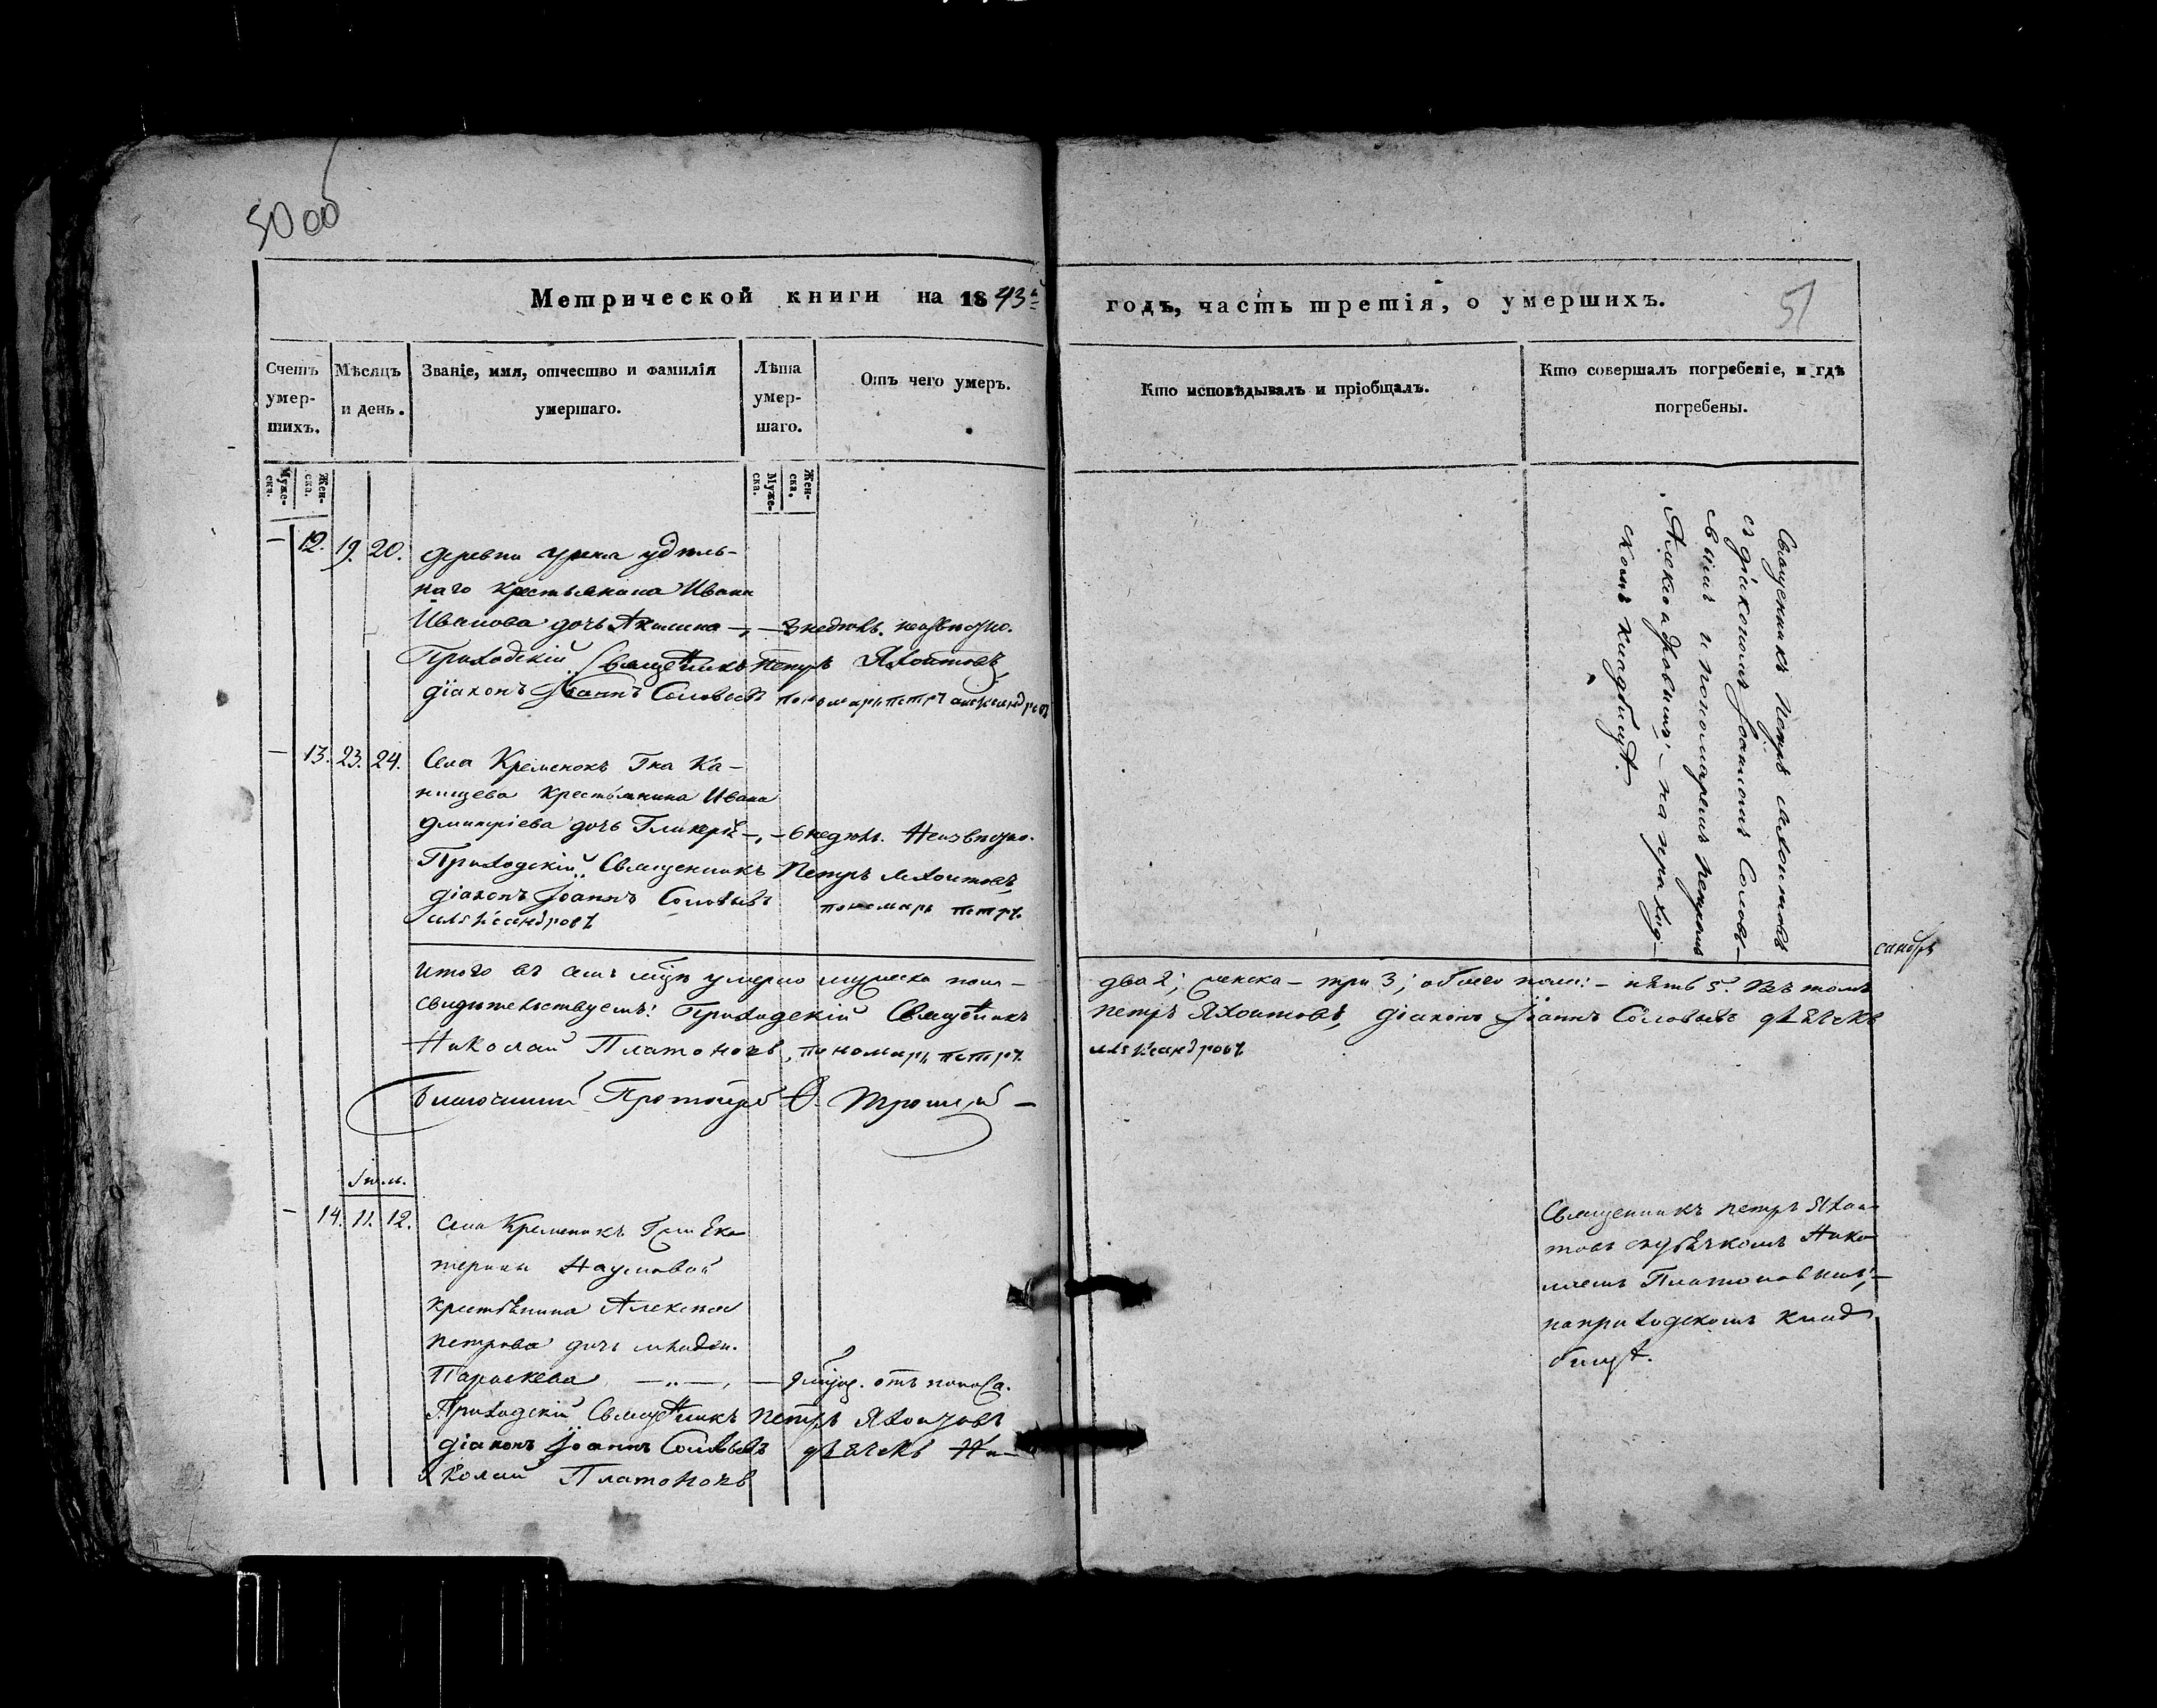 50 об
Метрической книги на 1843й годъ, часть третія, о умершихъ.
51
Счетъ умер-шихъ.
Мѣсяцъ и день.
Званіе, имя, отчество и фамилія умершаго.
Лѣта умер-шаго.
Отъ чего умеръ.
Кто исповѣдывалъ и пріобщалъ.
Кто совершалъ погребеніе, и гдѣ погребены.
Муже-ска.
Жен-ска.
Муже-ска.
Жен-ска.
— 12. 19. 20. деревни удѣль-
наго крестьянина Ивана
Иванова дочь Акилина —,— 3 недѣль. неизвѣстно.
Приходскій Священникъ Петръ Яхонтовъ,
діаконъ Іоаннъ Соловьевъ пономарь петръ александровъ
— 13. 23. 24. Села Кременокъ Гна Ка-
нищева крестьянина Ивана
Дмитріева дочь Гликерія —,— 6 недѣль. Неизвѣстно.
Приходскій Священникъ Петръ Яхонтовъ,
діаконъ Іоаннъ Соловьевъ пономарь петръ
александровъ
Священникъ Петръ Яхонтовъ
съ діакономъ Іоанномъ Соловь-
евымъ и пономаремъ Петромъ
Александровымъ; — на приход-
скомъ кладбищѣ.
Итого въ семъ мцѣ умерло мужеска пола — два 2; женска — три 3; обоего пола: — пять 5. Въ томъ
свидѣтельствуемъ: Приходскій Священникъ Петръ Яхонтовъ, діаконъ Іоаннъ Соловьевъ дьячекъ
Николай Платоновъ, пономарь петръ александровъ
сандръ
Благочинный Протоіерей
Іюль.
— 14. 11. 12. Села Кременокъ Гжи Ека-
терины Наумовой
крестьянина Алексея
Петрова дочь младен.
Параскева —„—, — отъ поноса.
Приходскій Священникъ Петръ Яхонтовъ
діаконъ Іоаннъ Соловьевъ дьячекъ Ни-
колай Платоновъ
Священникъ Петръ Яхон-
товъ съ дьячкомъ Нико-
лаемъ Платоновымъ; —
на приходскомъ клад-
бищѣ.